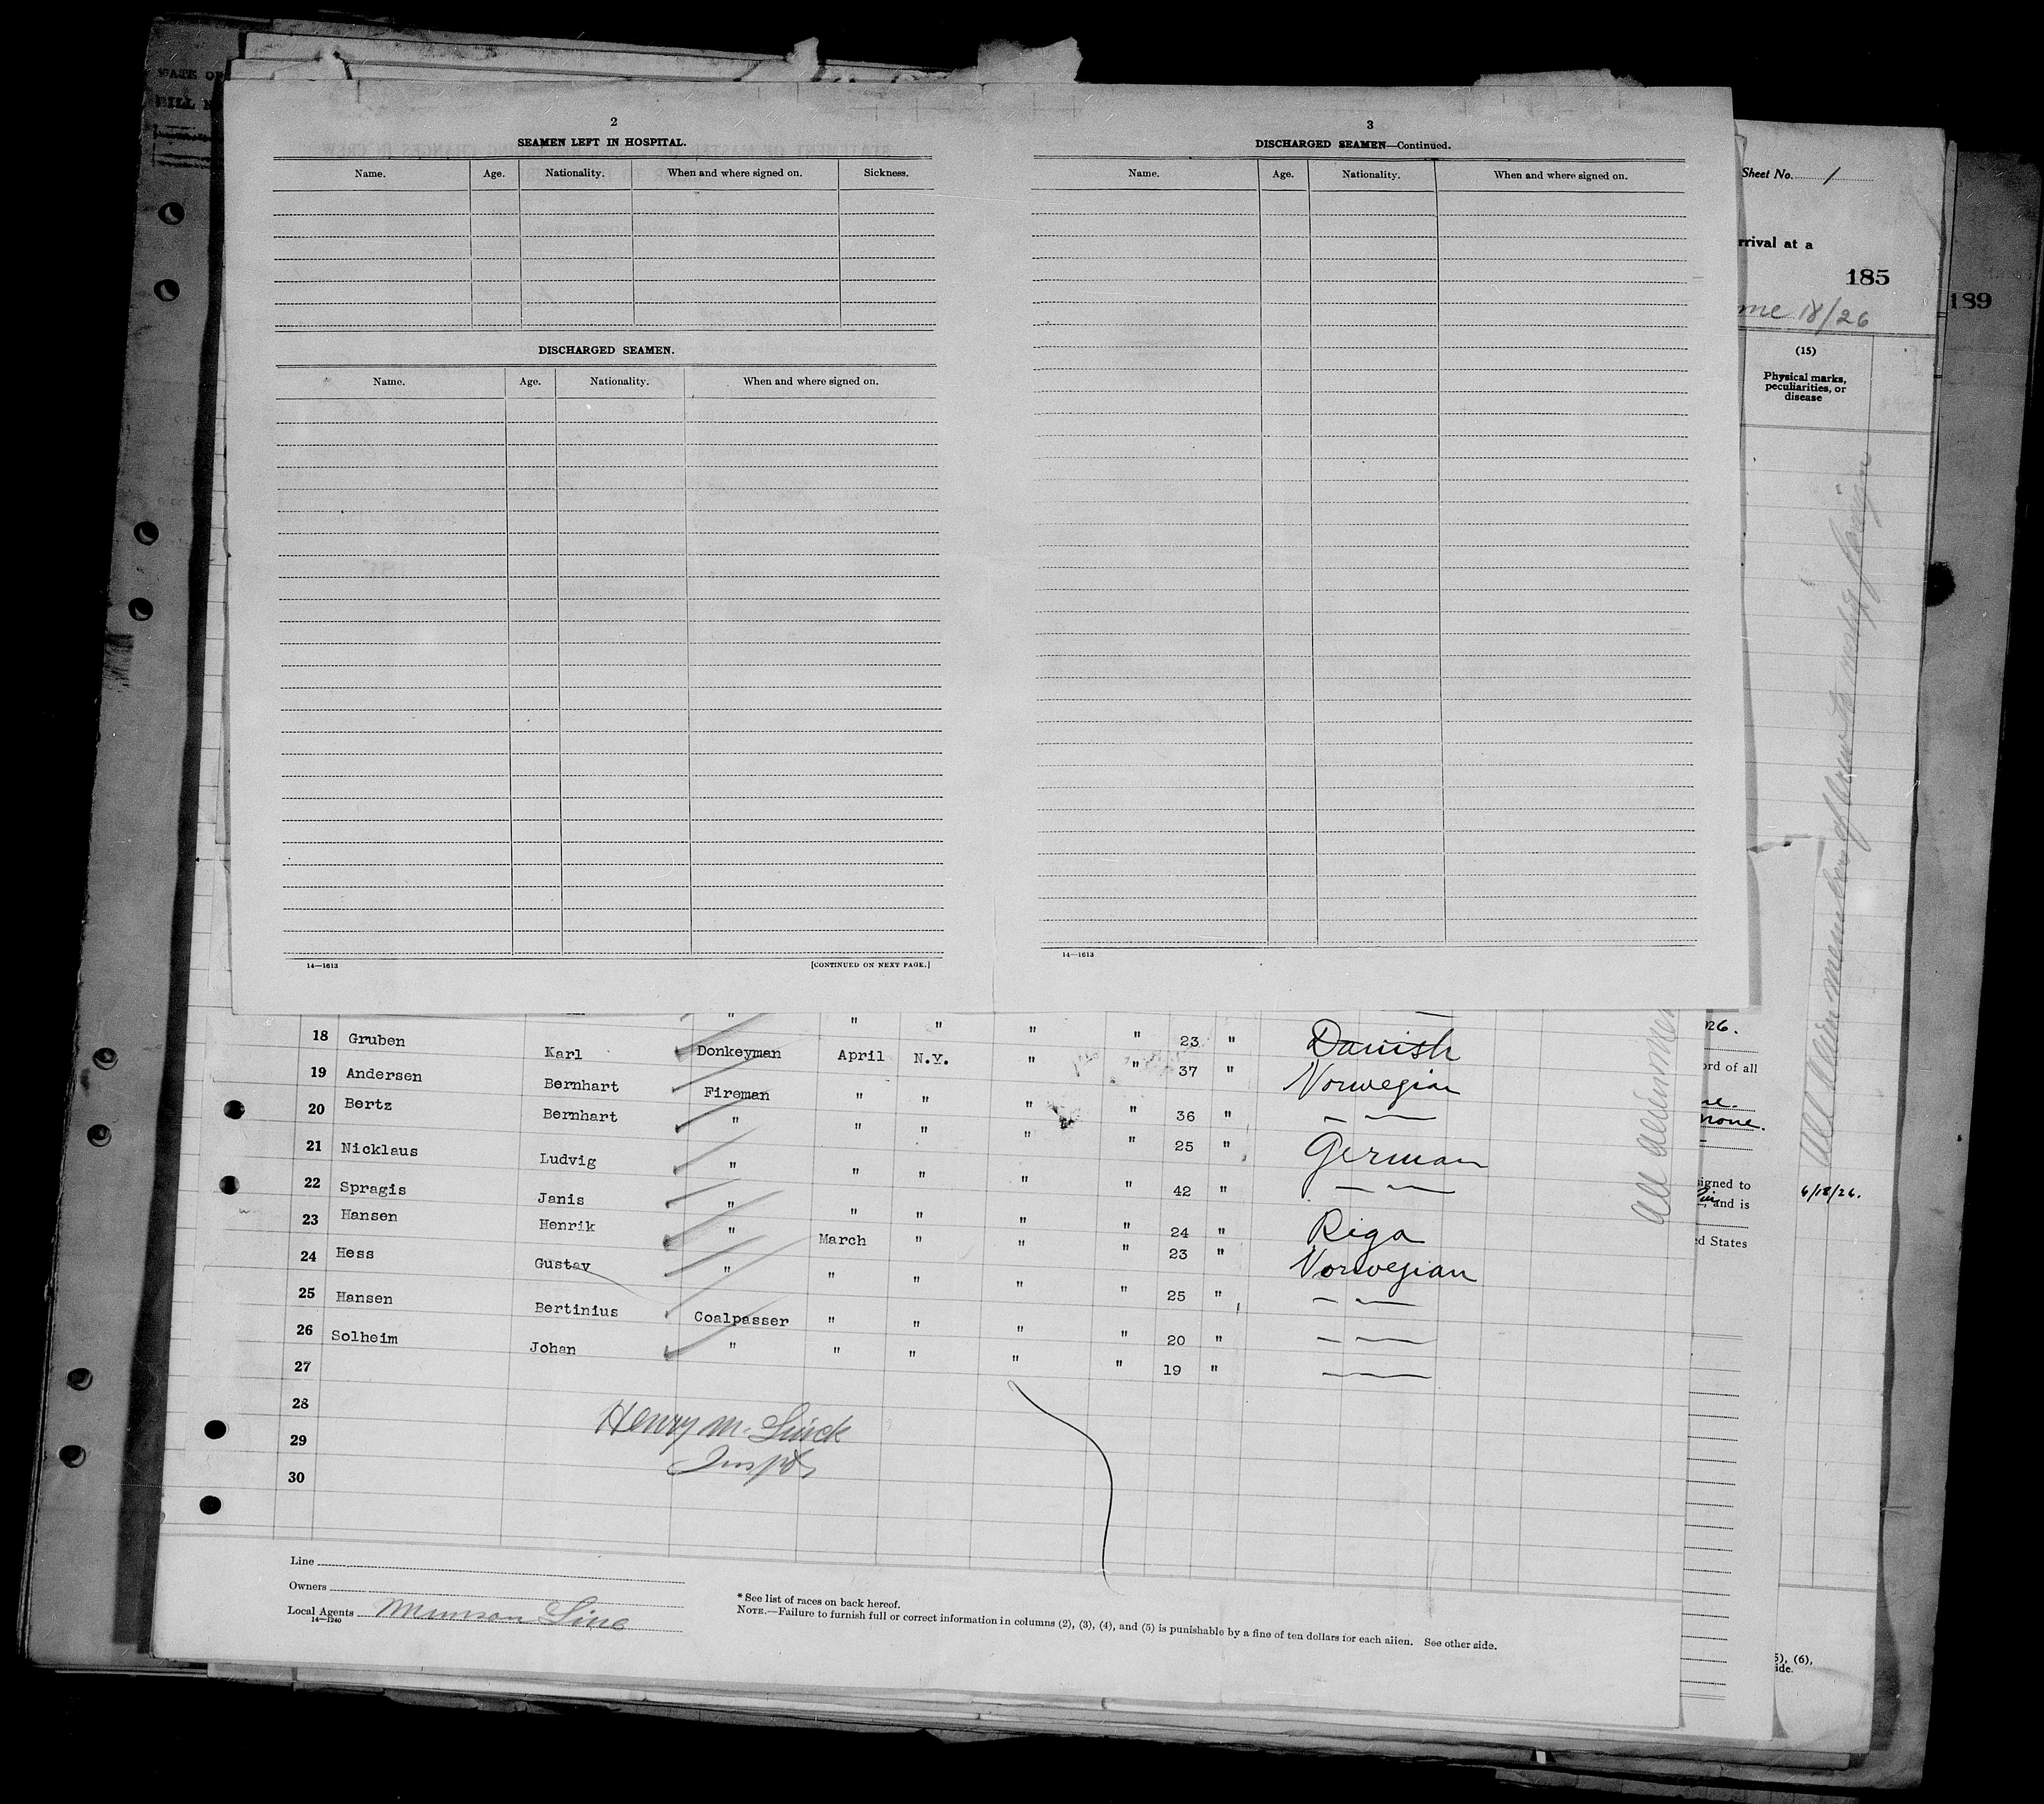 2
SEAMEN LEFT IN HOSPITAL.
Name. Age. Nationality. When and where signed on. Sickness.
DISCHARGED SEAMEN.
Name. Age. Nationality. When and where signed on.
14—1613 [CONTINUED ON NEXT PAGE.]
3
DISCHARGED SEAMEN—Continued.
Name. Age. Nationality. When and where signed on.
14—1613
Sheet No. 1
rrival at a
185
189
me 18/26
(15)
Physical marks,
peculiarities, or
disease
" " " " " 23 " Danish
18 Gruben Karl Donkeyman April N.Y. " " 37 " Norwegian
19 Andersen Bernhart Fireman " " " " 36 " — —
20 Bertz Bernhart " " " " " 25 " German
21 Nicklaus Ludvig " " " " " 42 " — —
22 Spragis Janis " " " " " 24 " Riga
23 Hansen Henrik " March " " " 23 " Norwegian
24 Hess Gustav " " " " " 25 " — —
25 Hansen Bertinius Coalpasser " " " " 20 " — —
26 Solheim Johan " " " " " 19 " — —
27
28
29
30
Henry M. Linck
Insptr
All alien mem
All alien members of crew to reship foreign
26.
ord of all
ne.
none.
signed to
, and is
ed States
6/18/26.
5), (6),
ide.
Line
Owners
Local Agents Munson Line
14—1240
* See list of races on back hereof.
NOTE.—Failure to furnish full or correct information in columns (2), (3), (4), and (5) is punishable by a fine of ten dollars for each alien. See other side.